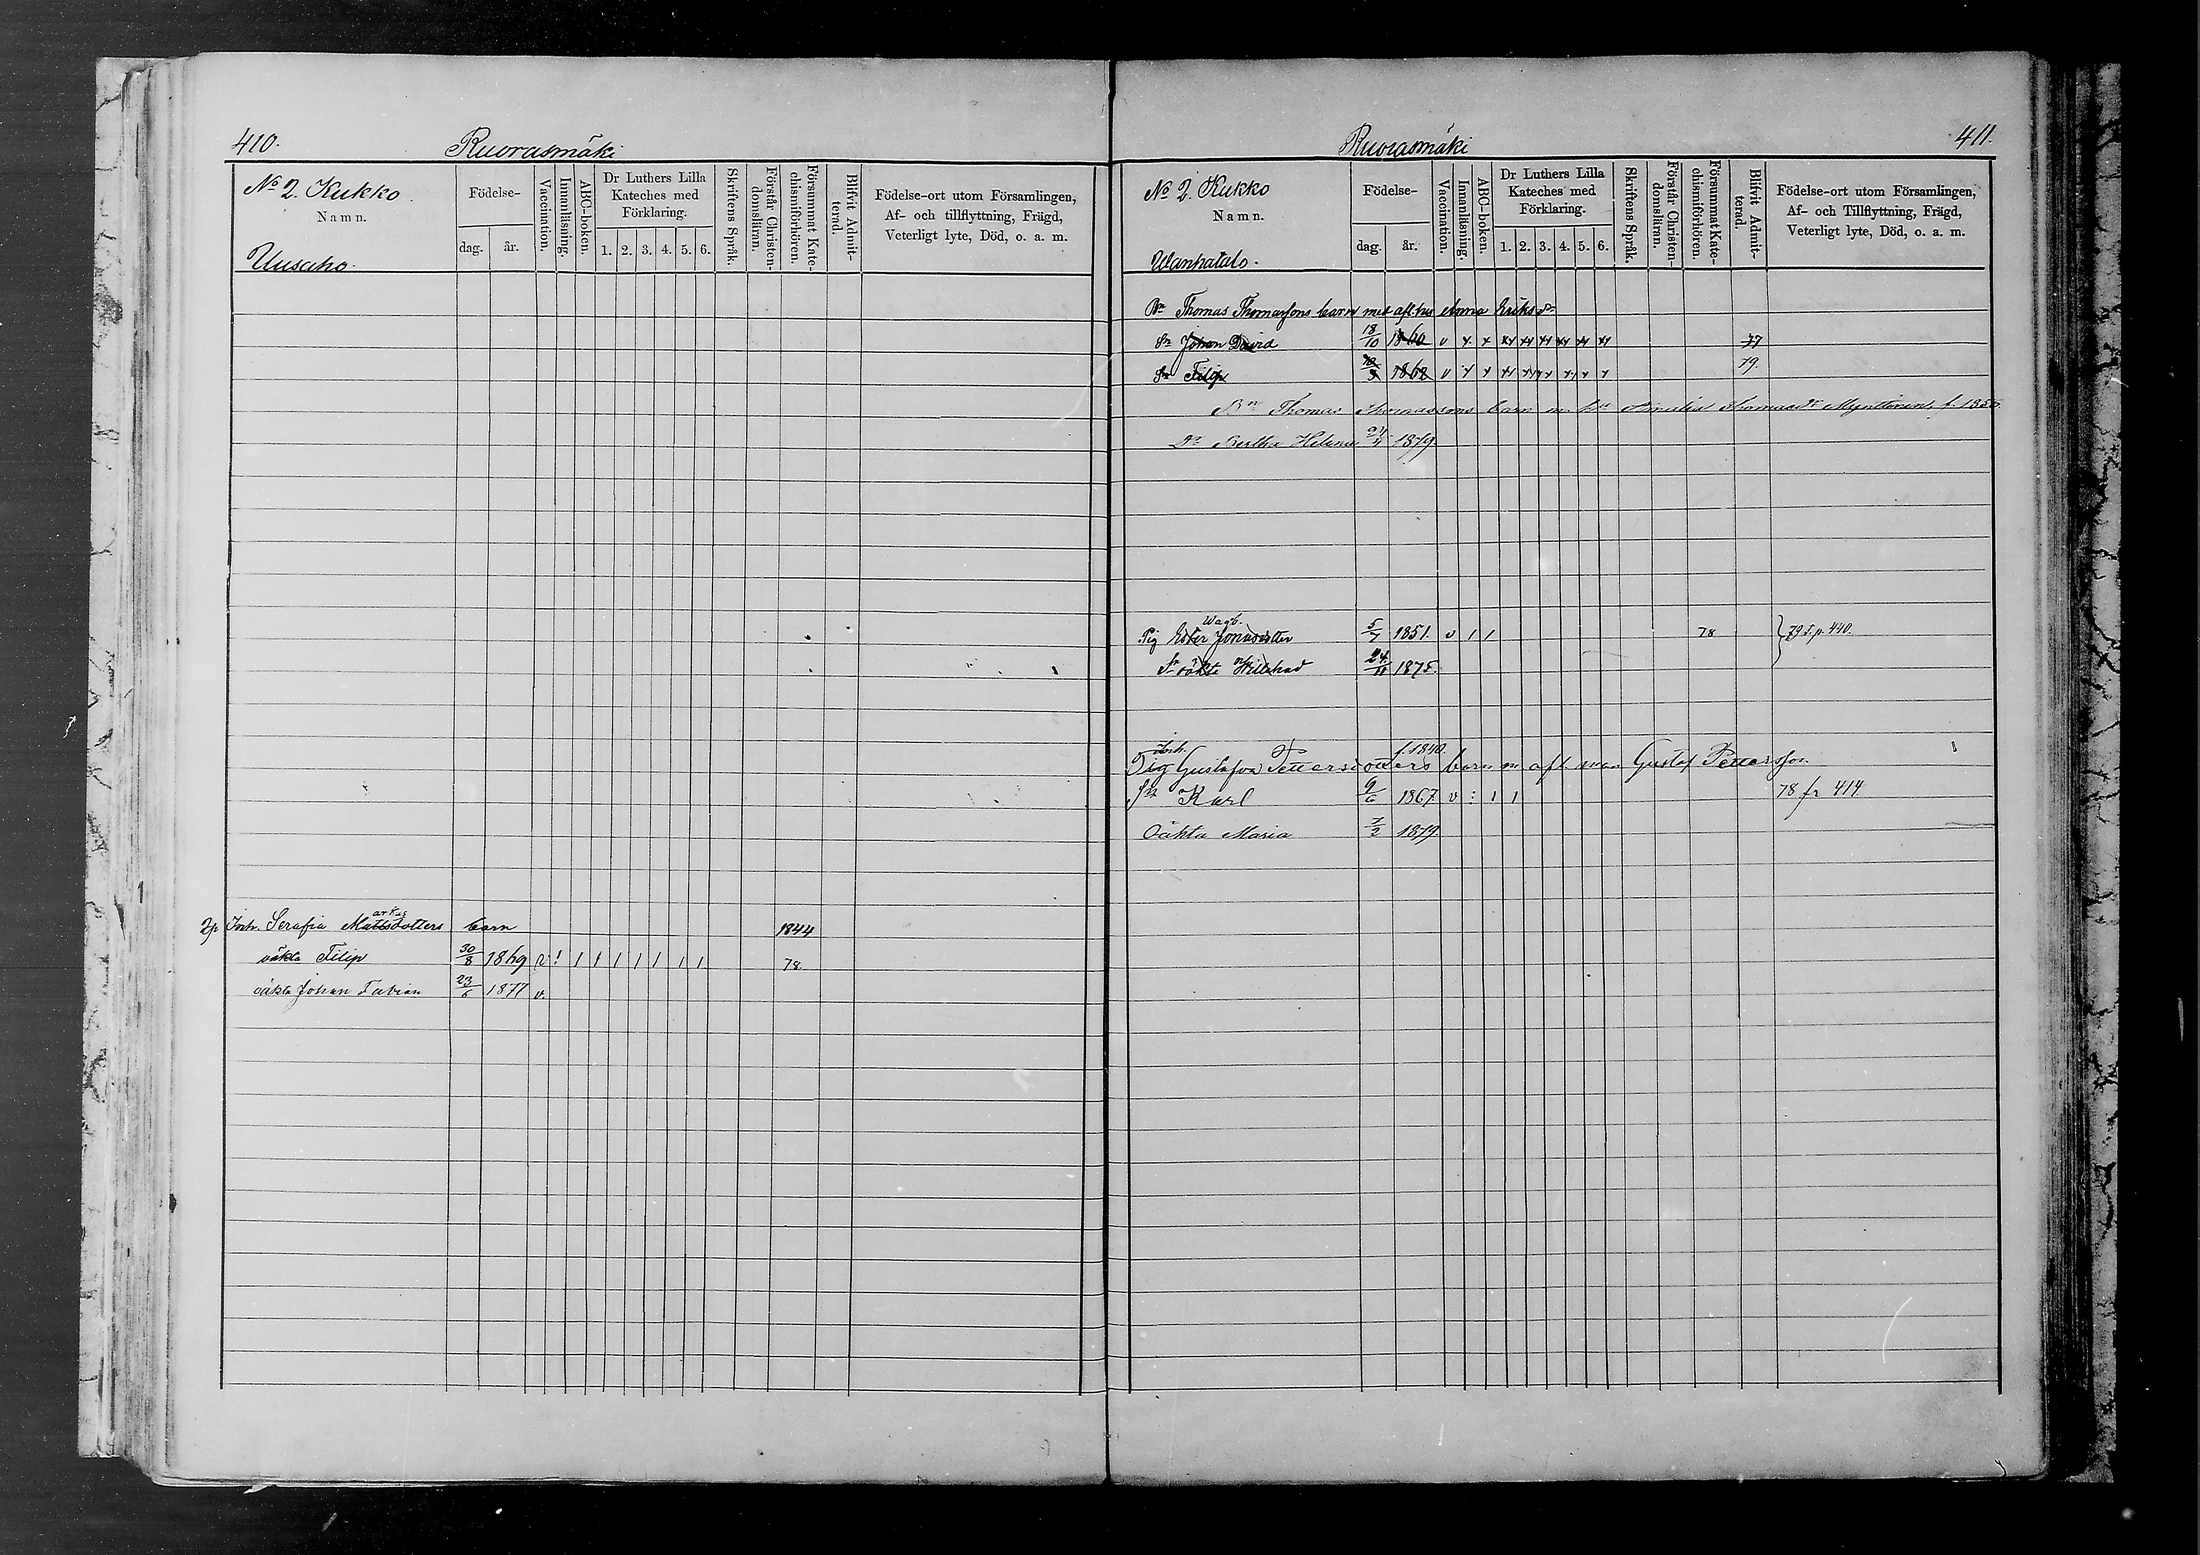 410.
Ruorasmäki
No 2. Kukko.
Namn.
Uusaho.
Födelse-
dag.
år.
Vaccination.
Innanläsning.
ABC-boken.
Dr Luthers Lilla
Kateches med
Förklaring.
1. 2. 3. 4. 5. 6.
Skriftens Språk.
Förstår Christen-
domsläran.
Försummat Kate-
chismiförhören.
Blifvit Admit-
terad.
Födelse-ort utom Församlingen,
Af- och tillflyttning, Frägd,
Veterligt lyte, Död, o. a. m.
Inh. Serafia Mattsdotters barn 1844
oäkta Filip 30/8 1869 78.
oäkta Johan Fabian 23/6 1877 v.
Ruorasmäki
411.
No 2. Kukko
Namn.
Wanhatalo.
Födelse-
dag.
år.
Vaccination.
Innanläsning.
ABC-boken.
Dr Luthers Lilla
Kateches med
Förklaring.
1. 2. 3. 4. 5. 6.
Skriftens Språk.
Förstår Christen-
domsläran.
Försummat Kate-
chismiförhören.
Blifvit Admit-
terad.
Födelse-ort utom Församlingen,
Af- och Tillflyttning, Frägd,
Veterligt lyte, Död, o. a. m.
Bn Thomas Thomassons barn med afl hu Anna Eriksdr
Sn Johan David 18/10 1860 v 77
Sn Filip 1862 v 79.
Bn Thomas Thomassons barn m. hu Thomasdr Mynttinen, f. 1855
Dr Bertha Helena 1879.
Wagb.
Pig Ester Jonasdotter 5/7 1851. v 1 1 78 } 79 f. p. 440.
Sn oäkta Willehad 24/11 1875.
Inh. f. 1840.
Pig Gustafva Pettersdotters barn m afl man Gustaf Pettersson
Sn Karl 9/6 1867 v : 1 1 78 fr 414
Oäkta Maria 7/2 1879